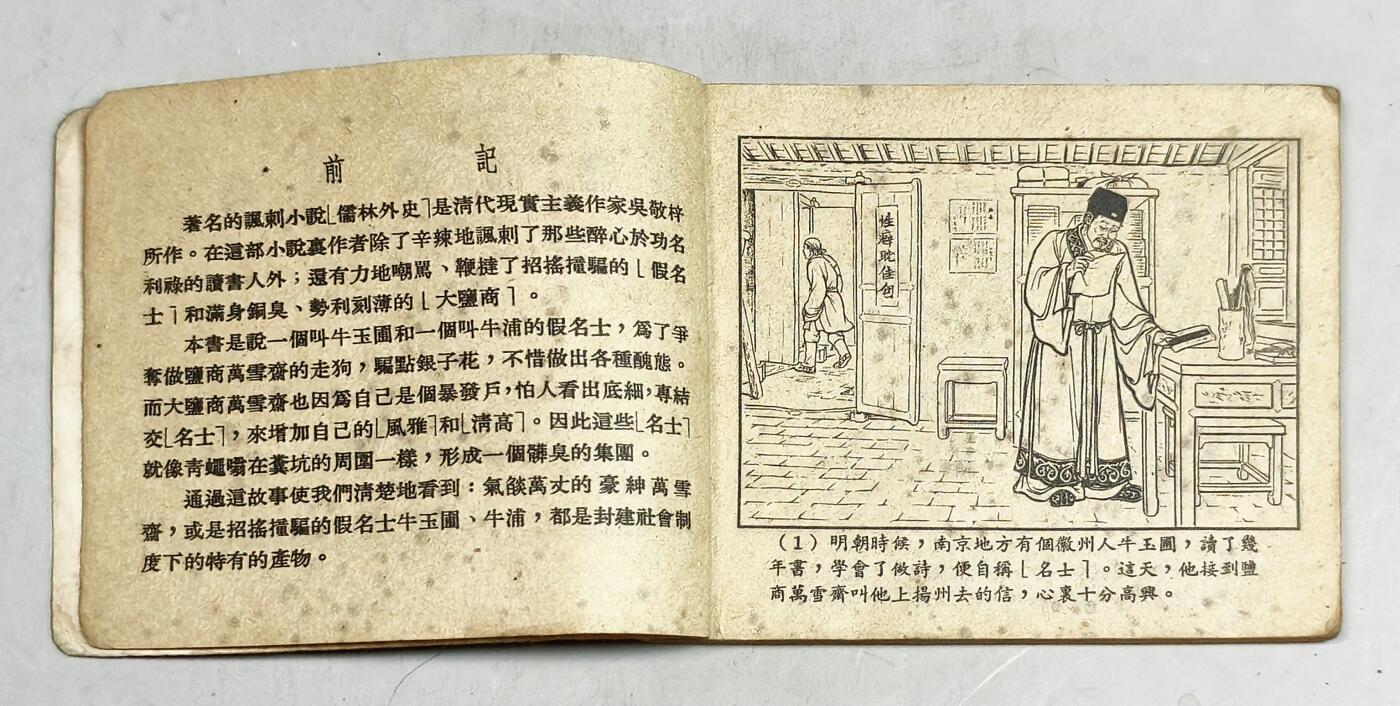 前記
著名的諷刺小說⌊儒林外史⌉是清代現實主義作家吳敬梓
所作。在這部小說裏作者除了辛辣地諷刺了那些醉心於功名
利祿的讀書人外；還有力地嘲罵、鞭撻了招搖撞騙的⌊假名
士⌉和滿身銅臭、勢利刻薄的⌊大鹽商⌉。
本書是說一個叫牛玉圃和一個叫牛浦的假名士，爲了爭
奪做鹽商萬雪齋的走狗，騙點銀子花，不惜做出各種醜態。
而大鹽商萬雪齋也因爲自己是個暴發戶，怕人看出底細，專結
交⌊名士⌉，來增加自己的⌊風雅⌉和⌊清高⌉。因此這些⌊名士⌉
就像青蠅嘬在糞坑的周圍一樣，形成一個髒臭的集團。
通過這故事使我們清楚地看到：氣燄萬丈的豪紳萬雪
齋，或是招搖撞騙的假名士牛玉圃、牛浦，都是封建社會制
度下的特有的產物。
性癖耽佳句
（1）明朝時候，南京地方有個徽州人牛玉圃，讀了幾
年書，學會了做詩，便自稱⌊名士⌉。這天，他接到鹽
商萬雪齋叫他上揚州去的信，心裏十分高興。